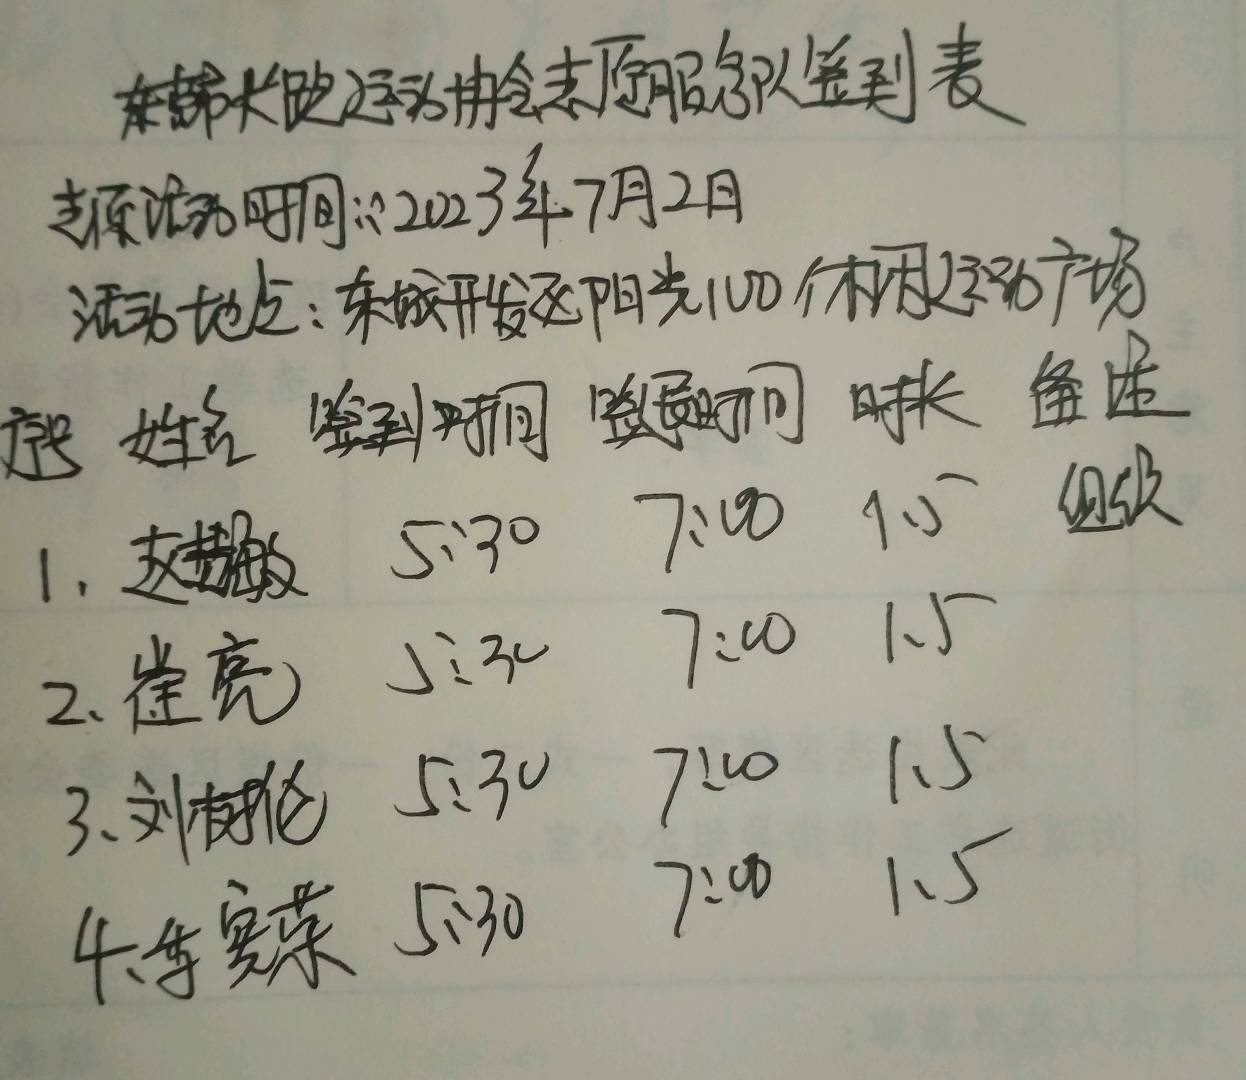 长跑运动协会志愿服务队签到表
志愿活动时间：2023年7月2日
活动地点：东城开发区阳光100休闲运动广场
序号 姓名 签到时间 签退时间 时长 备注
组织
1、赵慧敏 5:30 7:00 1.5
2、崔亮 5:30 7:00 1.5
3、刘树伦 5:30 7:00 1.5
4、李宝荣 5:30 7:00 1.5